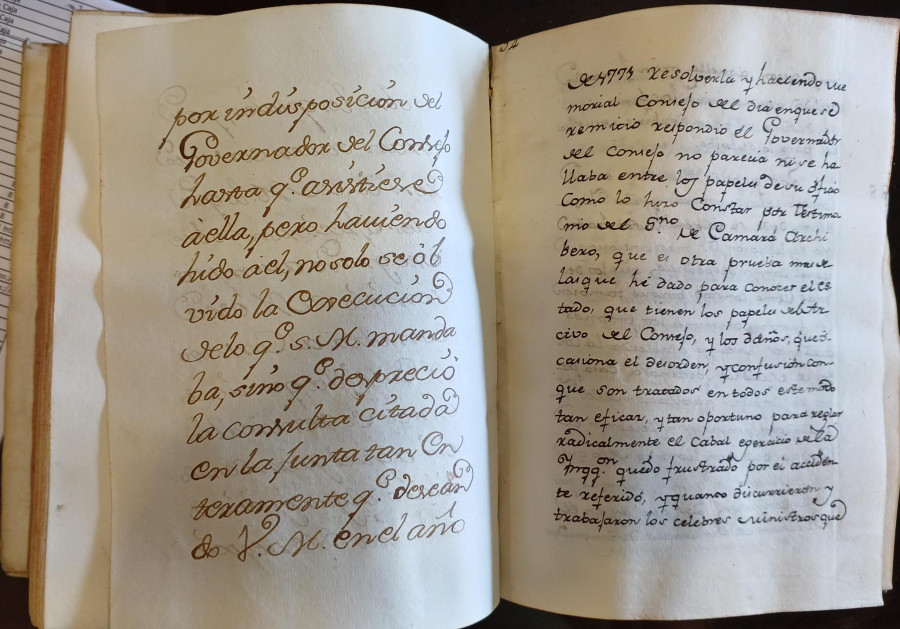 por indisposición del
Governador del Consejo
hasta q.e asistiese
à ella, pero haviendo
hido à el, no solo se ol
vido la Execución
de lo q.e S. M. manda
ba, sino q.e despreció
la consulta citada
en la Junta tan En
teramente q.e desean
do V. M. en el año
de 1771 resolverla y haciendo me
morial Consejo del dia en que se
remicio respondió el Governador
del Consejo no parecia ni se ha
llaba entre los papeles de su oficio
como lo hizo Constar por Testimo
nio del S.rio de Camara Archi
bero, que es otra prueba mas de
las que hé dado para conocer el es
tado, que tienen los papeles del Ar
civo del Consejo, y los daños, que o
casiona el desorden, y confusión con
que son tratados en todos este medio
tan eficaz, y tan oportuno para reglar
radicalmente el Cabal egercicio de la
Ynqq.on quedó frustrado por el acciden
te referido, y quanto discurrieron y
trabajaron los celebres Ministros que